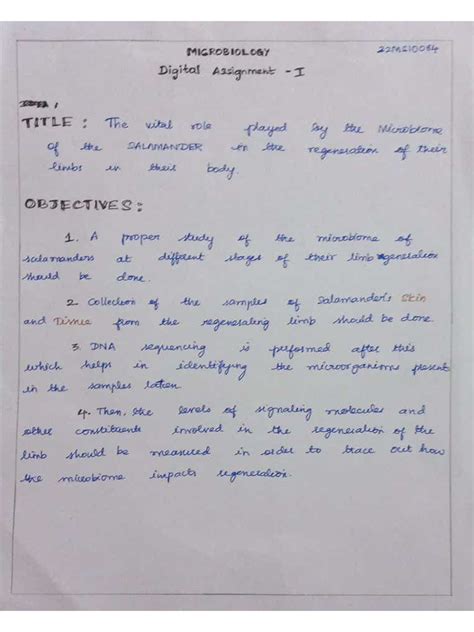 MICROBIOLOGY
22MSI0084
Digital Assignment - I
TITLE : The vital role played by the Microbiome
of the SALAMANDER in the regeneration of their
limbs in their body.
OBJECTIVES :
1. A proper study of the microbiome of
salamanders at different stages of their limb regeneration
should be done.
2. Collection of the samples of Salamander's Skin
and Tissue from the regenerating limb should be done.
3. DNA sequencing is performed after this
which helps in identifying the microorganisms present
in the samples taken.
4. Then, the levels of signaling molecules and
other constituents involved in the regeneration of the
limb should be measured in order to trace out how
the microbiome impacts regeneration.